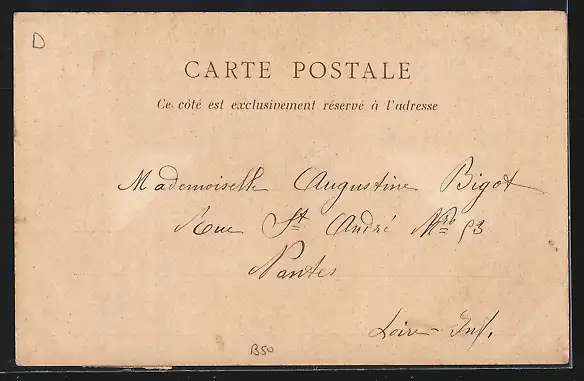 D
CARTE POSTALE
Ce côté est exclusivement réservé à l'adresse
Mademoiselle Augustine Bigot
Rue St André No 53
Nantes
Loire-Inf.
B50